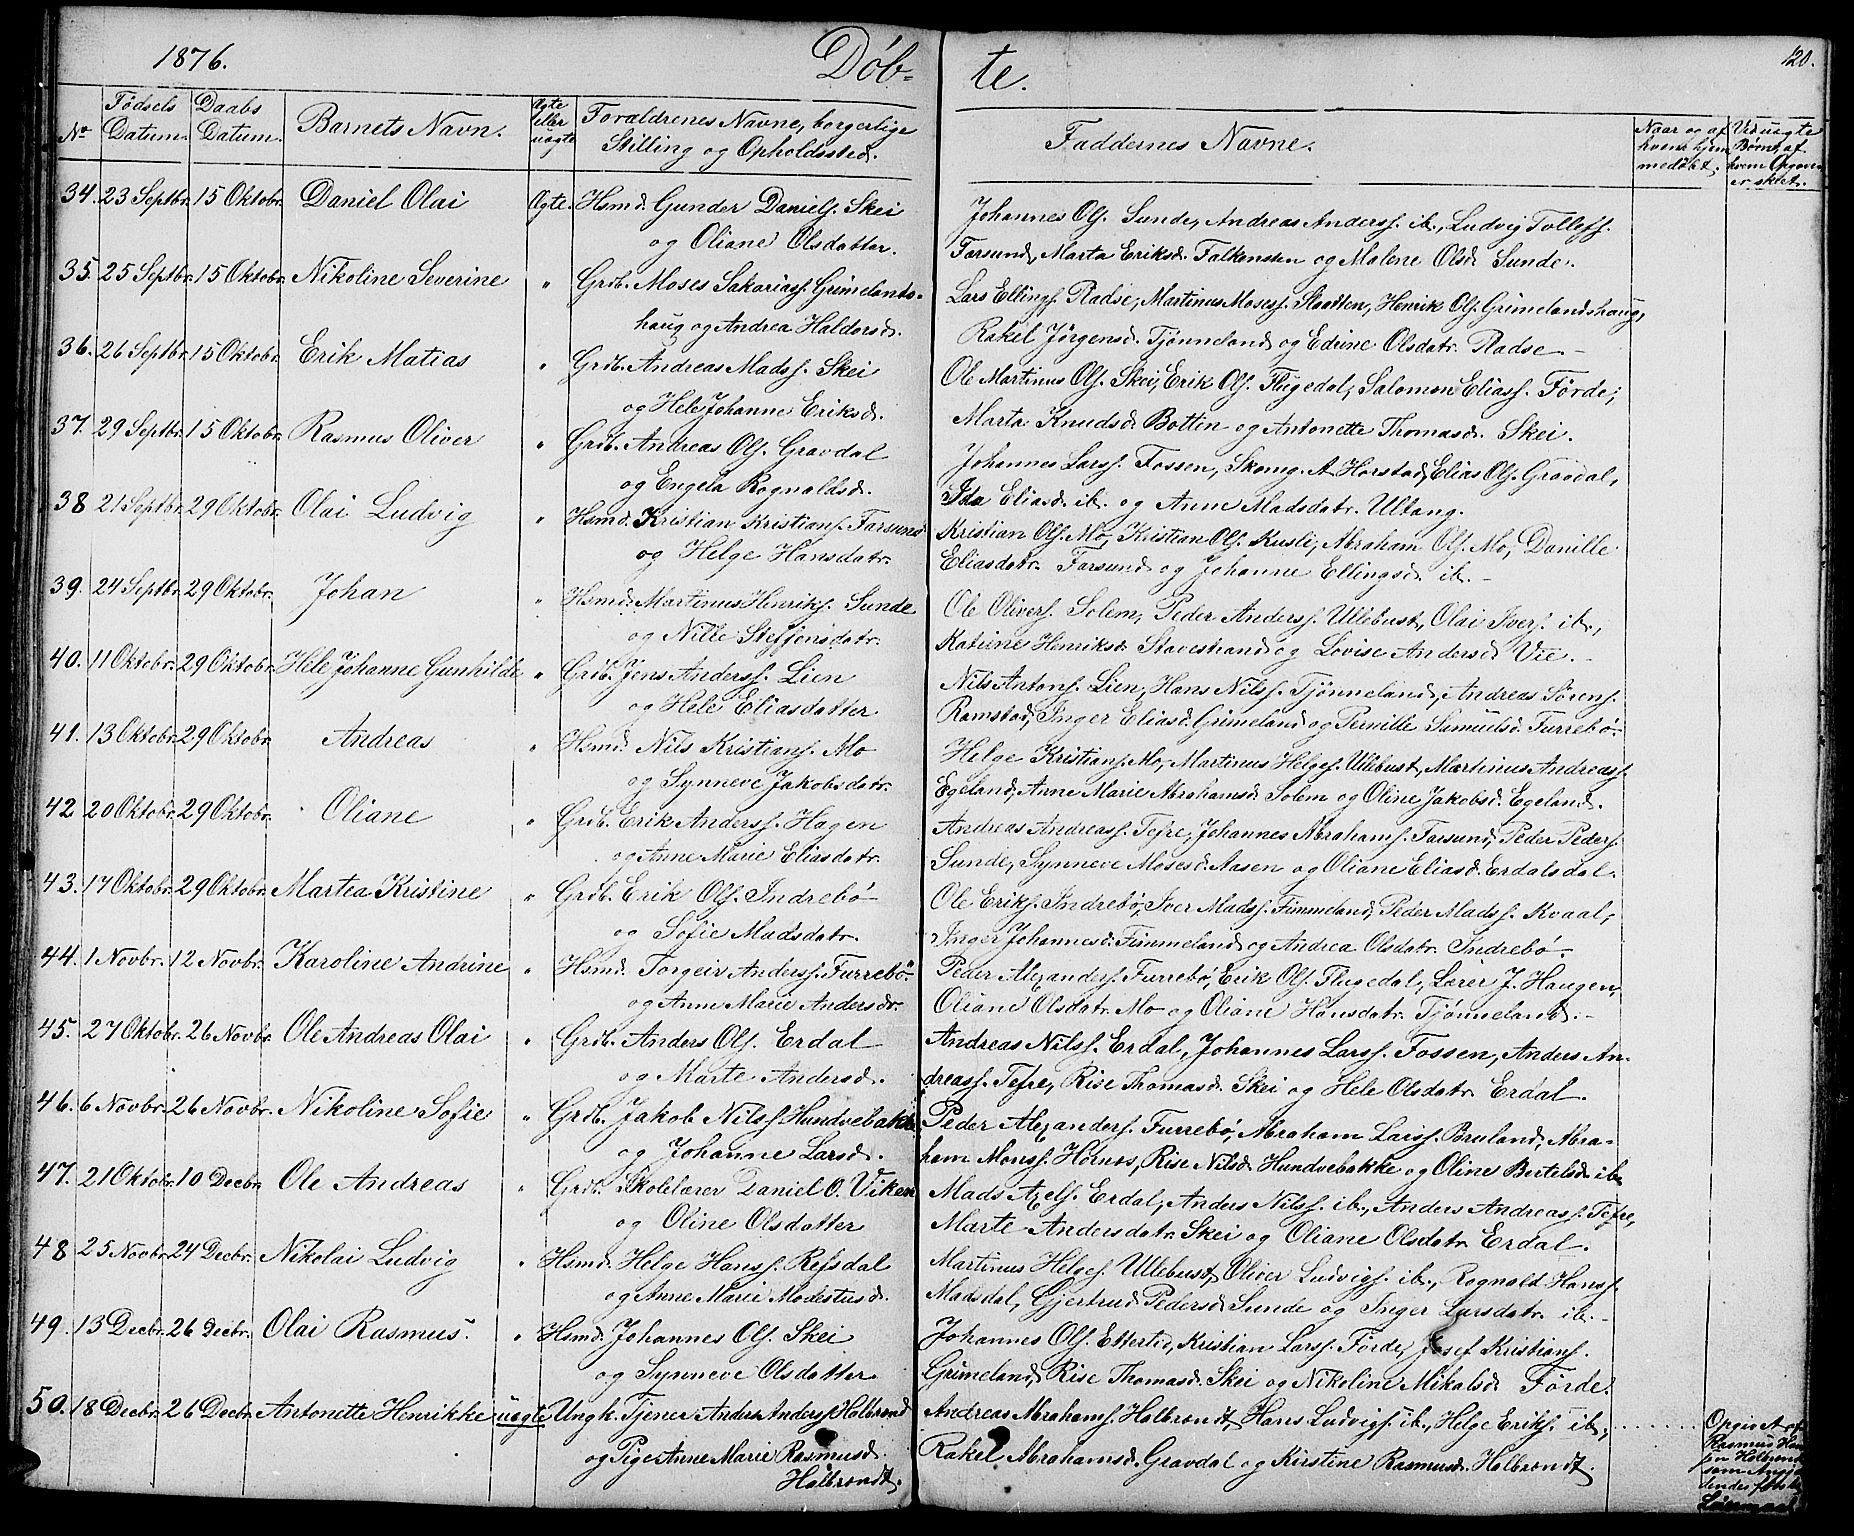 1876.
Døb-
te.
120.
No
Fødsels Datum.
Daabs Datum.
Barnets Navn.
Ægte eller uægte
Forældrenes Navne, borgerlige
Stilling og Opholdssted.
Faddernes Navne.
Naar og af
hvem hjem
medøbt.
Ved uægte
Børn af
hvem Opgaven
er skeet.
34. 23 Septbr. 15 Oktobr. Daniel Olai Ægte. Hsmd. Gunder Daniels. Skei
og Oliane Olsdatter.
Johannes Ols. Sunde, Andreas Anderss. ib., Ludvig Tollefs.
Farsund, Marta Eriksd. Falkensten og Malene Olsd. Sunde.
35. 25 Septbr. 15 Oktobr. Nikoline Severine " Grdb. Moses Sakariass. Grimelands-
haug og Andrea Haldorsd.
Lars Ellings. Radse, Martinus Moses. Slaatten, Henrik Ols. Grimelandshaug,
Rakel Jørgensd. Tjønneland og Edrine Olsdatr. Radse.
36. 26 Septbr. 15 Oktobr. Erik Matias " Grdb. Andreas Madss. Skei
og Hele Johanne Eriksd.
Ole Martinus Ols. Skei, Erik Ols. Flugedal, Salomon Eliass. Förde,
Marta Knudsd. Botten og Antonette Thomasd. Skei.
37. 29 Septbr. 15 Oktobr. Rasmus Oliver " Grdb. Andreas Ols. Gravdal
og Engela Rognaldsd.
Johannes Larss. Fossen, Skomg. A. Horstad, Elias Ols. Gravdal,
Ida Eliasd. ib. og Anne Madsdatr. Ullang.
38 21 Septbr. 29 Oktobr. Olai Ludvig " Hsmd. Kristian Kristians. Farsund
og Helge Hansdatr.
Kristian Ols. Mo, Kristian Ols. Kusli, Abraham Ols. Mo, Danille
Eliasdatr. Farsund og Johanne Ellingsd. ib.
39. 24 Septbr. 29 Oktobr. Johan " Hsmd. Martinus Henriks. Sunde
og Nille Steffensdatr.
Ole Olivers. Solem, Peder Anderss. Ullebust, Olai Ivers. ib.,
Katrine Henriksd. Stavestrand og Lovise Andersd. Vie.
40. 11 Oktobr. 29 Oktobr. Hele Johanne Gunhilde " Grdb. Jens Anderss. Lien
og Hele Eliasdatter
Nils Antons. Lien, Hans Nilss. Tjønneland, Andreas Sørens.
Ramstad, Inger Eliasd. Grimeland og Pernille Samuelsd. Furrebø.
41. 13 Oktobr. 29 Oktobr. Andreas " Hsmd. Nils Kristians. Mo
og Synneve Jakobsdatr.
Helge Kristians. Mo, Martinus Helges. Ullebust, Martinus Andreass.
Egeland, Anne Marie Abrahamsd. Solem og Oline Jakobsd. Egeland.
42 20 Oktobr. 29 Oktobr. Oliane " Grdb. Erik Anderss. Hagen
og Anne Marie Eliasdatr.
Andreas Andreass. Tefre, Johannes Abrahams. Farsund, Peder Peders.
Sunde, Synneve Mosesd. Aasen og Oliane Eliasd. Erdalsdal.
43. 17 Oktobr. 29 Oktobr. Martea Kristine " Grdb. Erik Ols. Indrebö
og Sofie Madsdatr.
Ole Eriks. Indrebö, Iver Madss. Fimmeland, Peder Madss. Kvaal,
Inger Johannesd. Fimmeland og Andrea Olsdatr. Indrebö.
44. 1 Novbr. 12 Novbr. Karoline Andrine " Hsmd. Torgeir Anderss. Furrebö
og Anne Marie Andersdr.
Peder Alexanders. Furrebö, Erik Ols. Flugedal, Lærer J. Haugen,
Oliane Olsdatr. Mo og Oliane Hansdatr. Tjønneland.
45. 27 Oktobr. 26 Novbr. Ole Andreas Olai " Grdb. Anders Ols. Erdal
og Marte Andersd.
Andreas Nilss. Erdal, Johannes Larss. Fossen, Anders An-
dreass. Tefre, Rise Thomasd. Skei og Hele Olsdatr. Erdal.
46. 6 Novbr. 26 Novbr. Nikoline Sofie " Grdb. Jakob Nilss. Hundvebakke
og Johanne Larsd.
Peder Alexanders. Furrebö, Abraham Larss. Bruland, Abra-
ham Monss. Hornes, Rise Nilsd. Hundvebakke og Oline Bertelsd. ib.
47. 21 Oktobr. 10 Decbr. Ole Andreas " Grdb. Skolelærer Daniel O. Viken
og Oline Olsdatter
Mads Axels. Erdal, Anders Nilss. ib., Anders Andreass. Tefre,
Marte Andersdatr. Skei og Oliane Olsdatr. Erdal.
48 25 Novbr. 24 Decbr. Nikolai Ludvig " Hsmd. Helge Hanss. Refsdal
og Anne Marie Modestusd.
Martinus Helges. Ullebust, Oliver Ludvigs. ib., Rognald Hanss.
Madsdal, Gjertrud Pedersd. Sunde og Inger Larsdatr. ib.
49. 13 Decbr. 26 Decbr. Olai Rasmus. " Hsmd. Johannes Ols. Skei
og Synneve Olsdatter
Johannes Ols. Ettertid, Kristian Larss. Förde, Josef Kristians.
Grimeland, Rise Thomasd. Skei og Nikoline Mikalsd. Förde.
50. 18 Decbr. 26 Decbr. Antonette Henrikke uægte Ungk. Tjener Anders Anderss. Halbrendt
og Pige Anne Marie Rasmusd.
Halbrendt.
Andreas Abrahams. Halbrendt, Hans Ludvigs. ib., Helge Eriks. ib.,
Rakel Abrahamsd. Gravdal og Kirstine Rasmusd. Halbrendt.
Opgivet af
Rasmus Han
sen Halbrendt
som